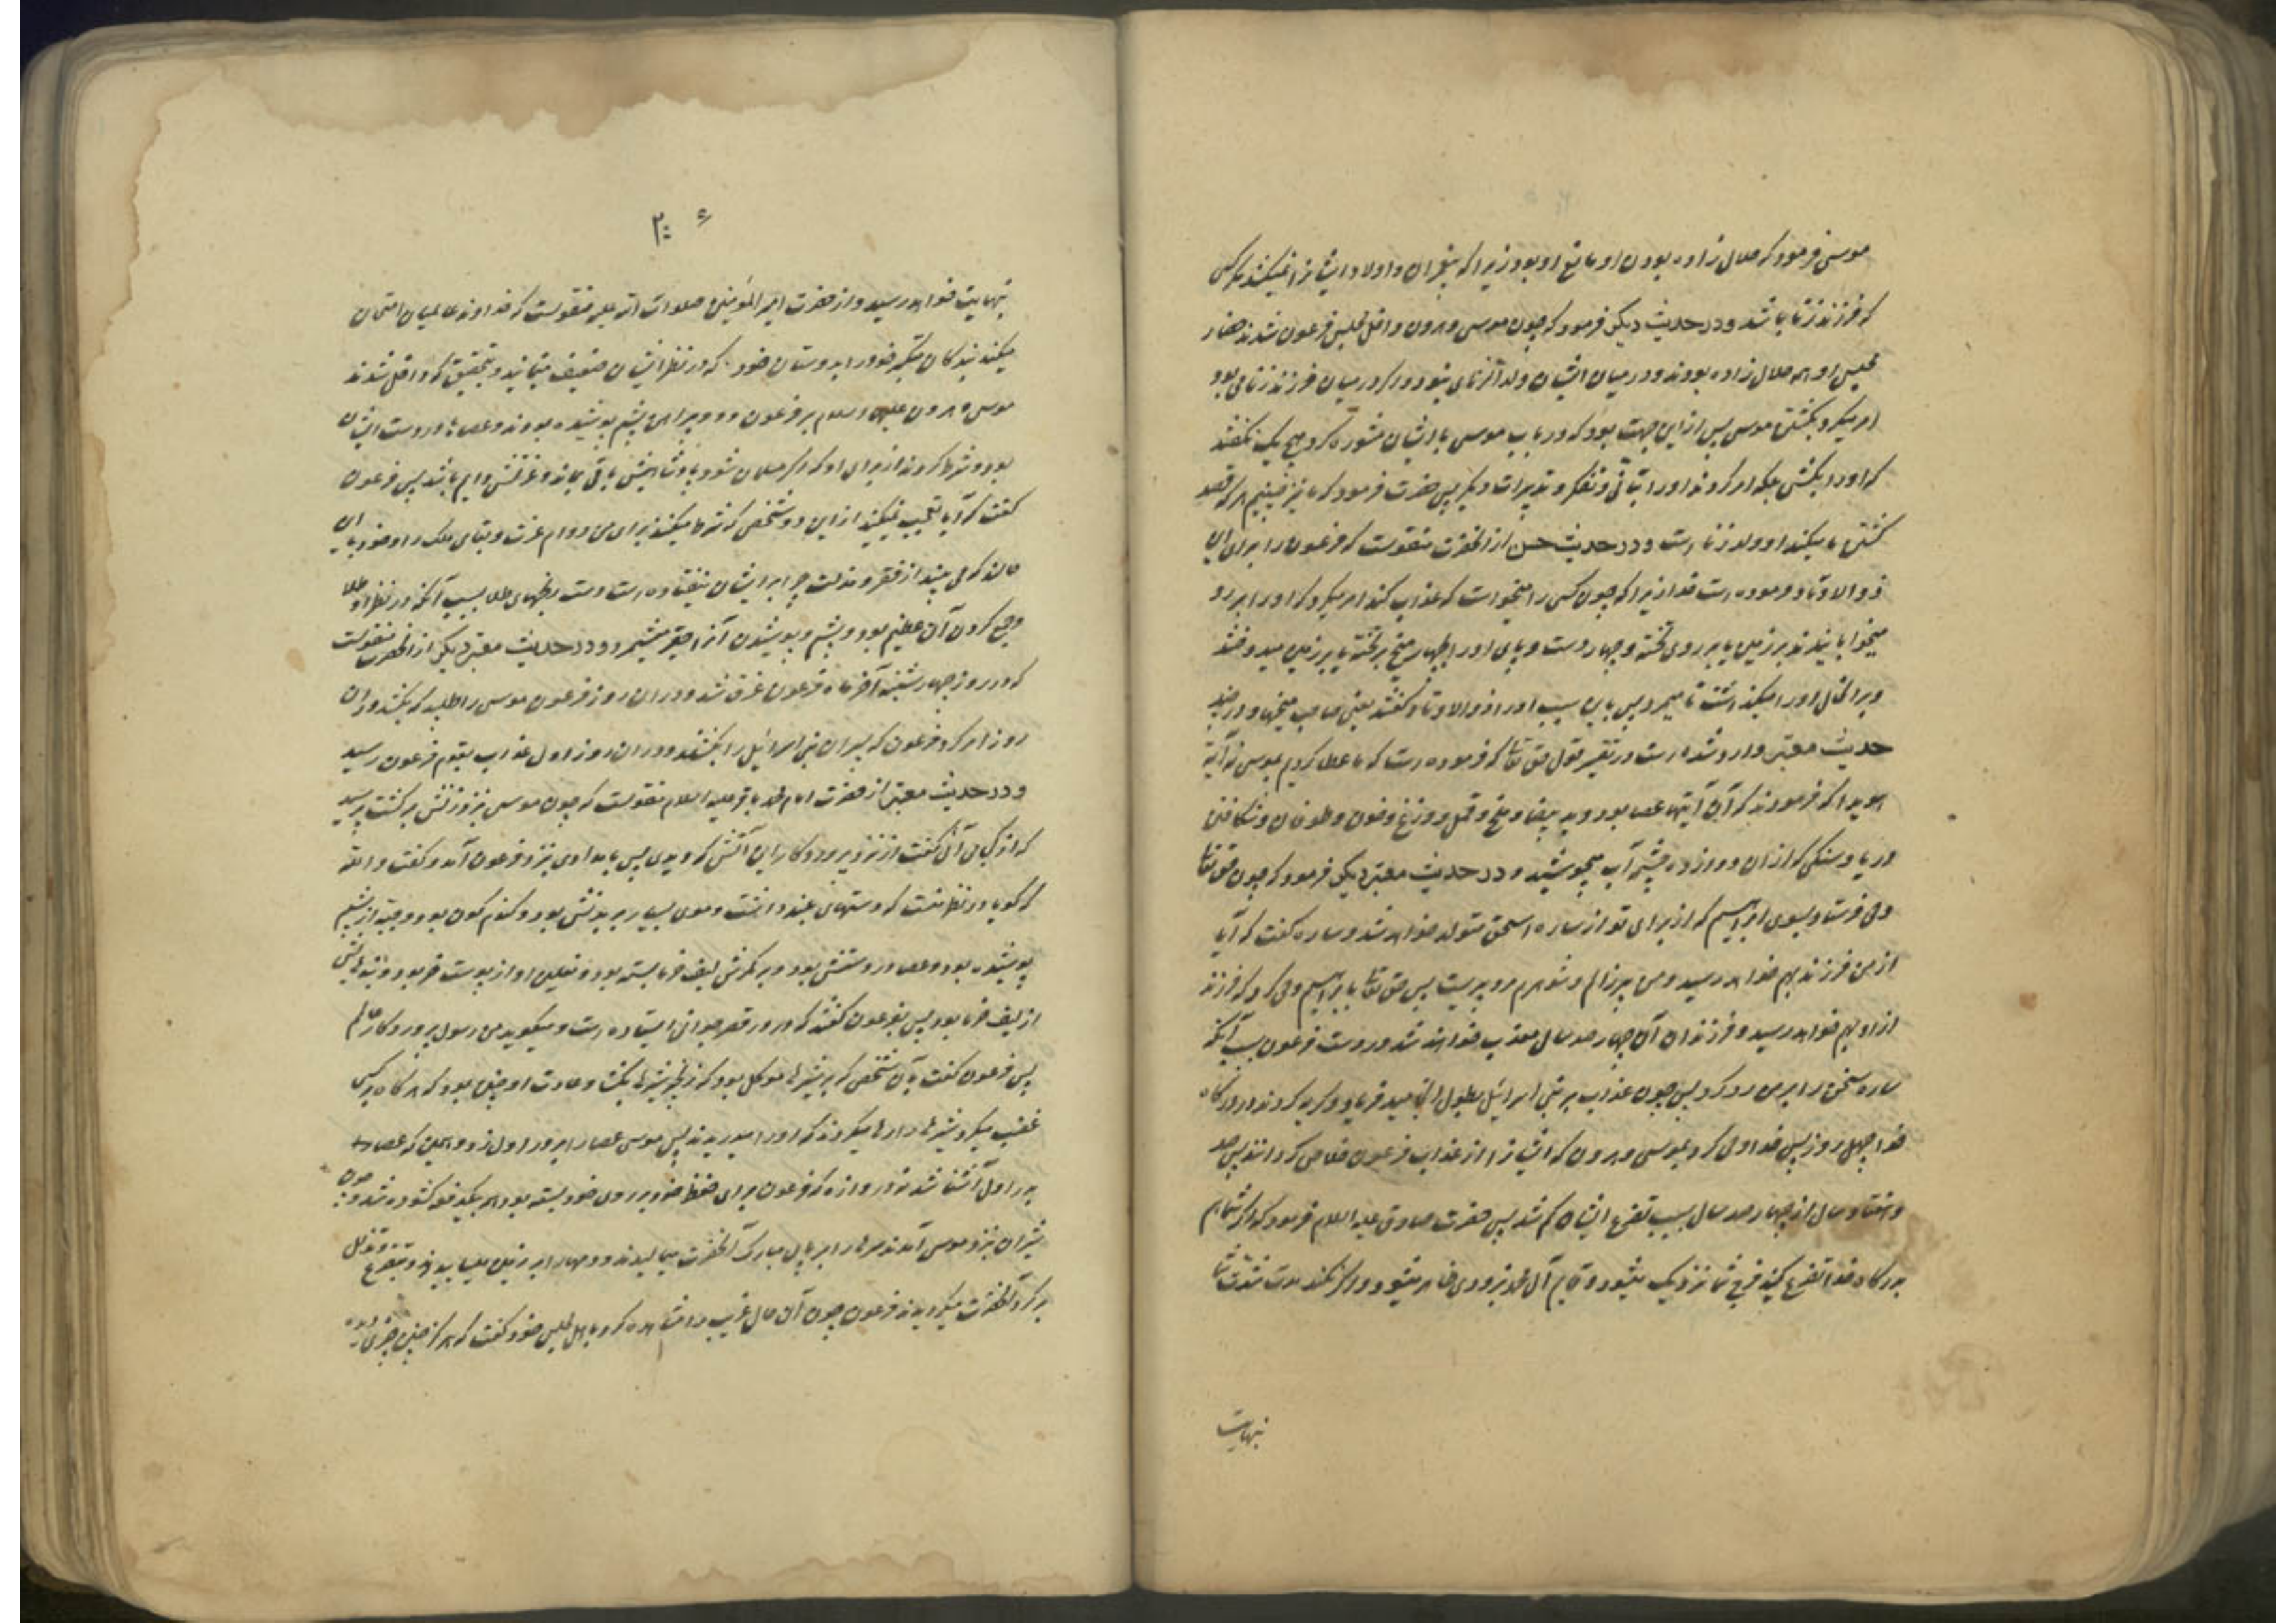 موسی فرمود که حلال زاده بودن او مانع او بود زیرا که پیغمبران و اولاد ایشانرا نمیکشد مگر کسی
که فرزند زنا باشد و در حدیث دیگر فرمود که چون موسی و هرون داخل مجلس فرعون شدند حضار
مجلس او همه حلال زاده بودند و در میان ایشان ولد الزنای نبود و اگر در میان فرزند زنا می بود
امر میکرد بکشتن موسی پس از این جهت بود که در باب موسی با ایشان مشوره کرد هیچ یک نگفتند
که او را بکشی بلکه امر کردند او را بتأنی و تفکر و تدبیرات دیگر پس حضرت فرمود که ما نیز چنینیم هر که قصد
کشتن ما میکند او ولد زنا است و در حدیث حسن از انحضرت منقولست که فرعون را برای این
ذو الاوتاد فرموده است خدا زیرا که چون کسی را میخواست که عذاب کند امر میکرد که او را بر رو
میخوابانیدند بر زمین یا بر روی تخته و چهار دست و پای او را بچهار میخ بر تخته یا بر زمین میدوختند
و بر انحال او را میگذاشت تا میمرد پس باین سبب او را ذو الاوتاد گفتند یعنی صاحب میخها و در چند
حدیث معتبر وارد شده است در تفسیر قول حق تعا که فرموده است که ما عطا کردیم بموسی نه آیة
هویدا که فرمودند که آن آیتها عصا بود و ید بیضا و ملخ و قمل و وزغ و خون و طوفان و شکافتن
دریا و سنگی که از ان دوازده چشمه آب میجوشید و در حدیث معتبر دیگر فرمود که چون حق تعا
وحی فرستاد بسوی ابراهیم که از برای تو از ساره اسحق متولد خواهد شد و ساره گفت که آیا
از من فرزند بهم خواهد رسید و من پیر زالم و شوهرم مرد پیریست پس حق تعا بابراهیم وحی کرد که فرزند
از او بهم خواهد رسید و فرزندان آن چهار صد سال معذب خواهند شد در دست فرعون بسبب آنکه
ساره سخن را بر من رد کرد پس چون عذاب بر بنی اسرائیل بطول انجامید فریاد و گریه کردند در درگاه
خدا چهل روز پس خدا وحی کرد بموسی و هرون که ایشانرا از عذاب فرعون خلاص گردانند پس صد
و هفتاد سال از چهار صد سال بسبب تضرع ایشان کم شد پس حضرت صادق علیه السلام فرمود که اگر شما هم
بدرگاه خدا تضرع کنید فرج شما نزدیک میشود و قایم آل محمد بزودی ظاهر میشود و اگر نکنند مدت شدت شما
نهایت
بنهایت خواهد رسید و از حضرت امیر المؤمنین صلوات الله علیه منقولست که خداوند عالمیان امتحان
میکند بندگان متکبر خود را بدوستان خود که در نظر ایشان ضعیف مینمایند و بتحقیق که داخل شدند
موسی و هرون علیهما السلام بر فرعون و دو پیراهن پشم پوشیده بودند و عصاها در دست ایشان
بود و شرط کردند از برای او که اگر مسلمان شود پادشاهیش باقی بماند و عزتش دایم باشد پس فرعون
گفت که آیا تعجب نمیکنید از این دو شخص که شرط میکنند برای من دوام عزت و بقای ملک را و خود باین
حالند که می بینید از فقر و مذلت چرا بر ایشان نیفتاده است دست رنجهای طلا بسبب آنکه در نظر او طلا
و جمع کردن آن عظیم بود و پشم و پوشیدن آنرا حقیر میشمرد و در حدیث معتبر دیگر از انحضرت منقولست
که در روز چهار شنبه آخر ماه فرعون غرق شد و در ان روز فرعون موسی را طلبید که بکشد و در ان
روز امر کرد فرعون که پسران بنی اسرائیل را بکشند و در ان روز اول عذاب بقوم فرعون رسید
و در حدیث معتبر از حضرت امام محمد باقر علیه السلام منقولست که چون موسی بنزد زنش برگشت پرسید
که از کجا می آئی گفت از نزد پروردگار این آتش که دیدی پس بامدادی بنزد فرعون آمد و گفت و الله
که گویا در نظر منست که دستهای بلند داشت و موی بسیار بر بدنش بود و گندم گون بود و جبه از پشم
پوشیده بود و عصا در دستش بود و بر کمرش لیف خرما بسته بود و نعلین او از پوست خر بود و بندهایش
از لیف خرما بود پس بفرعون گفتند که در در قصر جوانی ایستاده است و میگوید من رسول پروردگار عالم
پس فرعون گفت بآن شخص که بر شیرها موکل بود که زنجیر شیرها بگشا و عادت او چنین بود که هر گاه بر کسی
غضب میکرد شیرها را رها میکردند که او را میدریدند پس موسی عصا را بر در اول زد و همین که عصا
بدر اول آشنا شد نه دروازه که فرعون برای حفظ خود بر روی خود بسته بود همه بیکدفعه گشوده شد و چون
شیران بنزد موسی آمدند سرها را بر پای مبارک آنحضرت میمالیدند و دمها را بر زمین میسائیدند و بتضرع و تذلل
بر گرد آنحضرت میگردیدند فرعون چون آن حال غریب را مشاهده کرد باهل مجلس خود گفت که هرگز چنین چیزی دیده